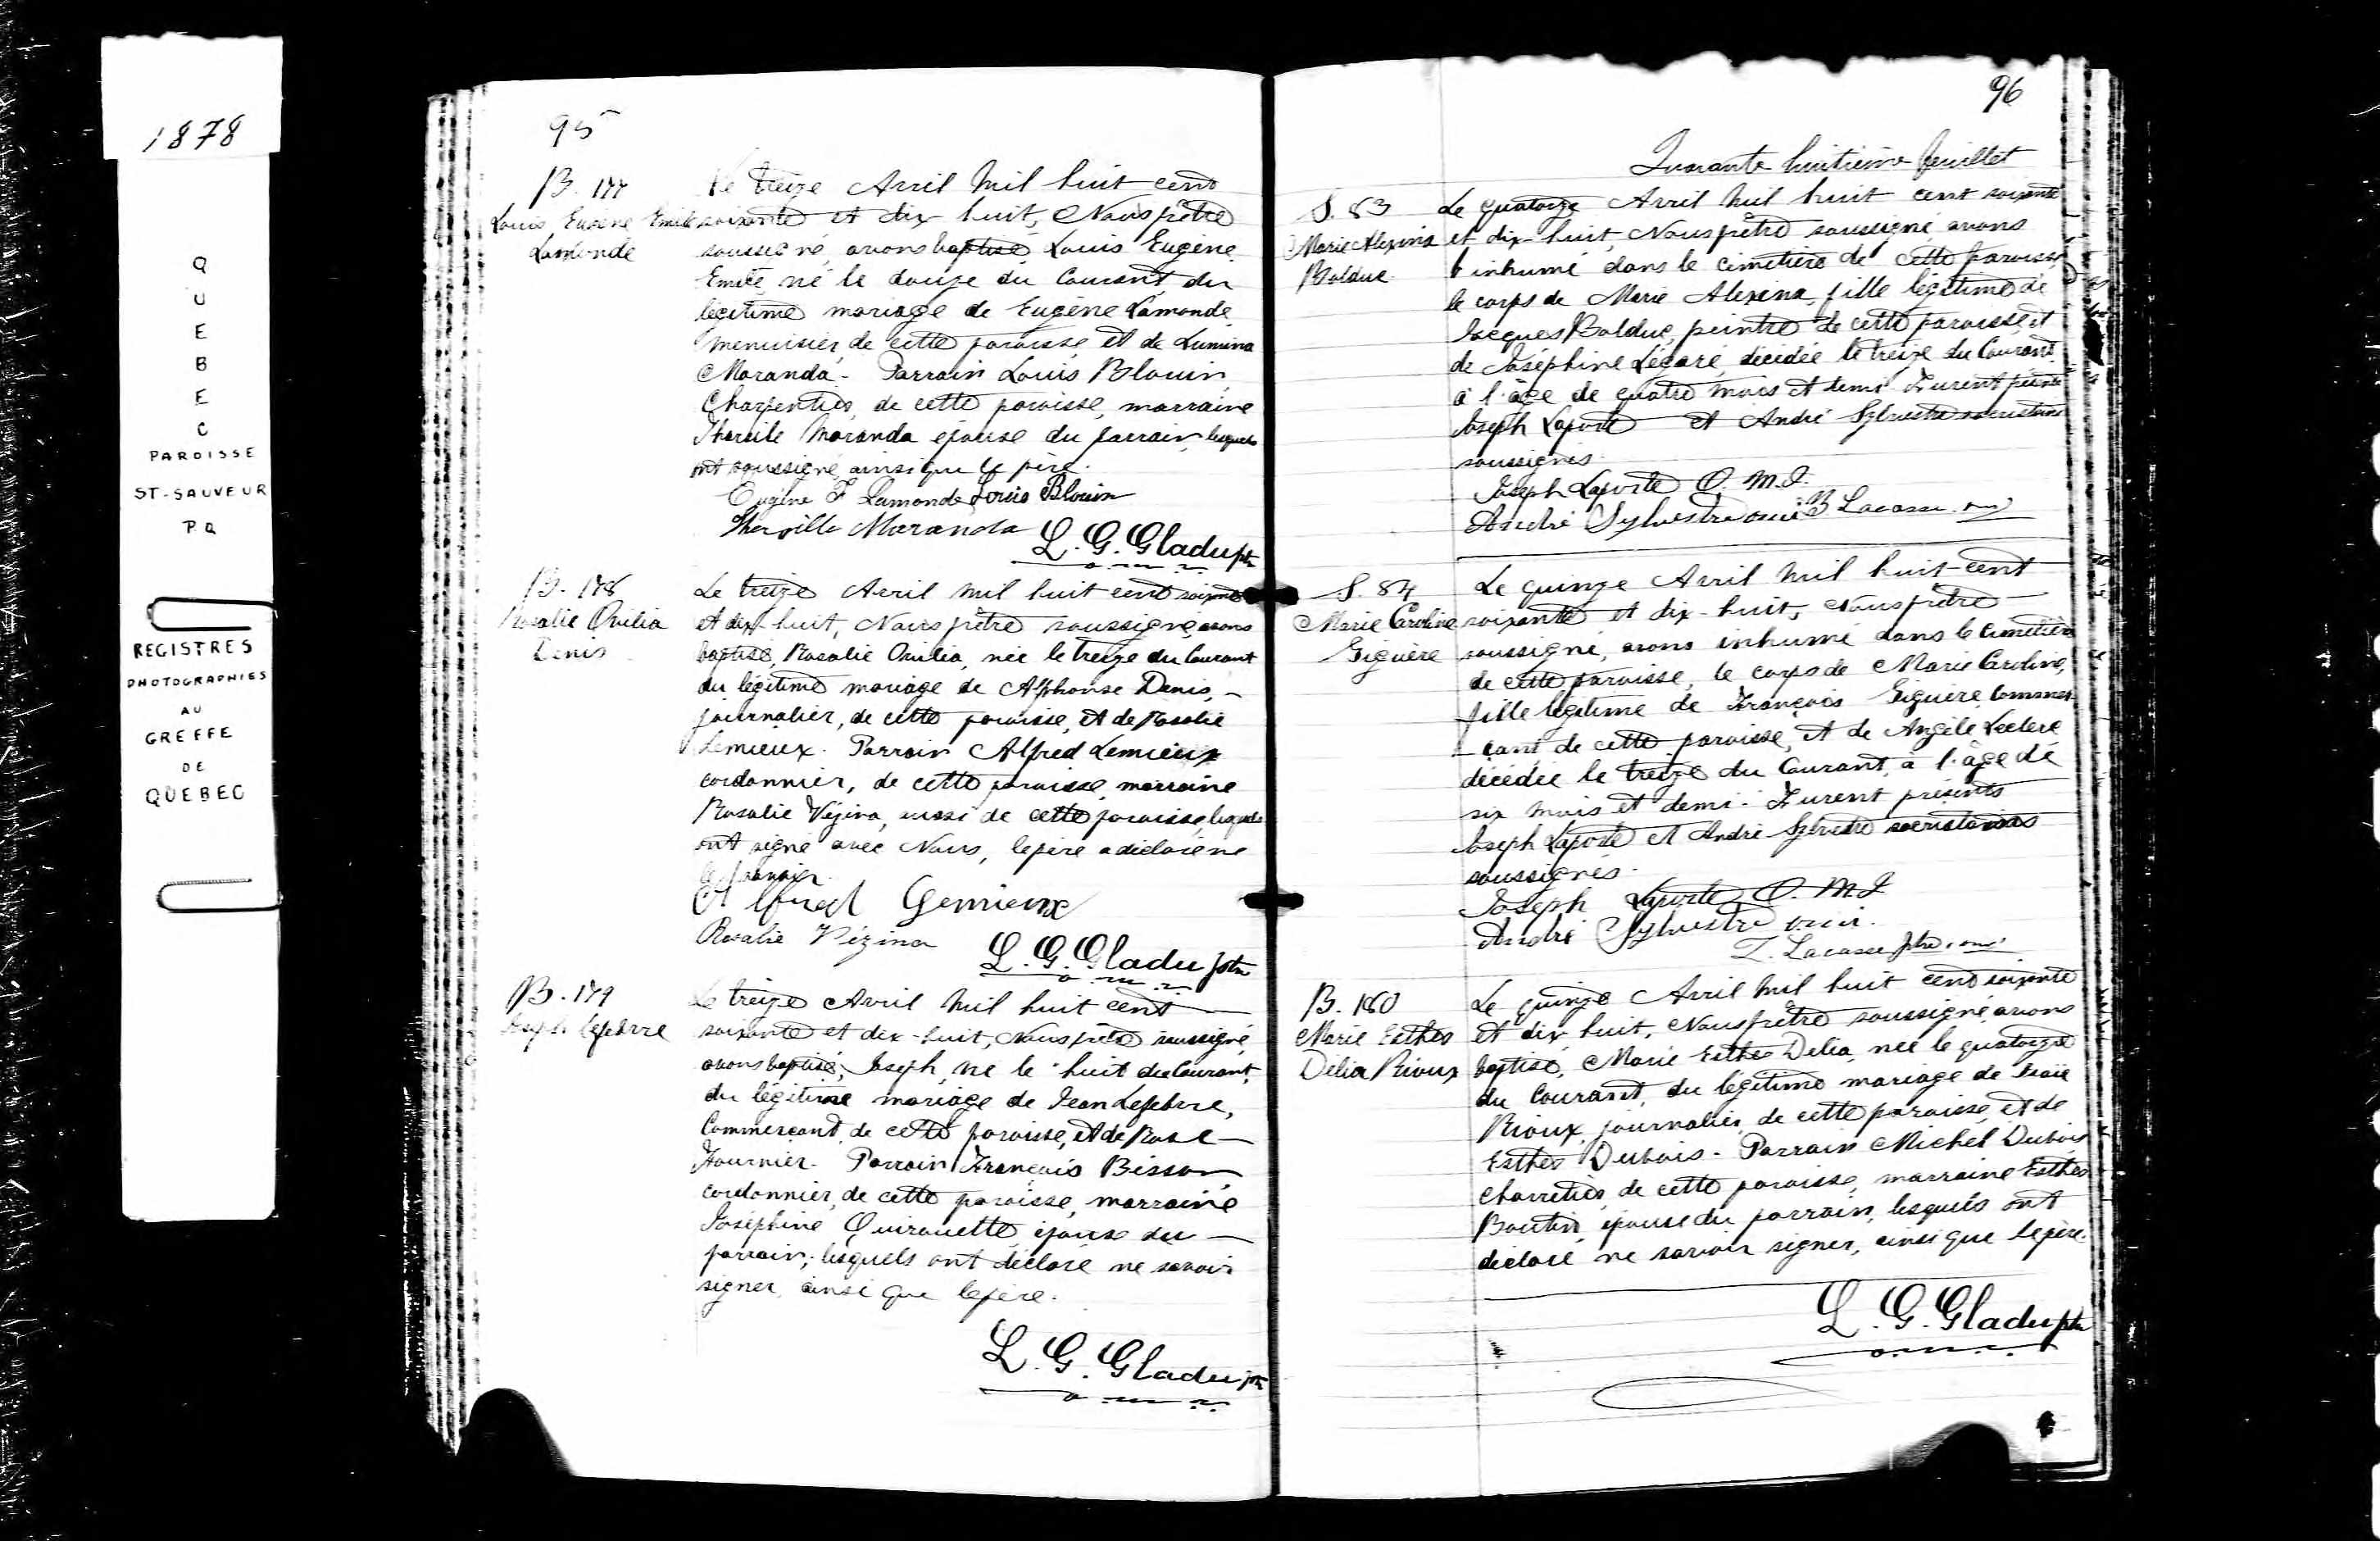 1878
Q
U
E
B
E
C
PAROISSE
ST-SAUVEUR
PQ
REGISTRES
PHOTOGRAPHIES
AU
GREFFE
DE
QUEBEC
95
B. 177
Louis Eugène Emile
Lamonde
Le treize Avril mil huit cent
soixante et dix-huit, Nous prêtre
soussigné, avons baptisé, Louis Eugène
Emile, né le douze du Courant, du
légitime mariage de Eugène Lamonde
menuisier, de cette paroisse et de Lumina
Maranda. Parrain Louis Blouin
Charpentier, de cette paroisse, marraine
Tharsile Maranda épouse du parrain, lesquels
ont soussigné ainsi que le père.
Eugène F Lamonde Louis Blouin
Tharsille Maranda
L. G. Gladu ptr
o.m.i.
B. 178
Rosalie Ovilia
Denis
Le treize Avril mil huit cent soixante
et dix-huit, Nous prêtre soussigné, avons
baptisé, Rosalie Ovilia, née le treize du Courant
du légitime mariage de Alphonse Denis,
journalier, de cette paroisse, et de Rosalie
Lemieux. Parrain Alfred Lemieux
cordonnier, de cette paroisse, marraine
Rosalie Vézina, aussi de cette paroisse, lesquels
ont signé avec Nous, le père a déclaré ne
le savoir.
Alfred Lemieux
Rosalie Vézina
L. G. Gladu ptre
o.m.i.
B. 179
Joseph Lefebvre
Le treize Avril mil huit cent
soixante et dix-huit, Nous prêtre soussigné
avons baptisé, Joseph, né le huit du Courant,
du légitime mariage de Jean Lefebvre,
Commerçant, de cette paroisse, et de Rose
Fournier. Parrain François Bisson
cordonnier, de cette paroisse, marraine
Joséphine Quirouette épouse du
parrain; lesquels ont déclaré ne savoir
signer, ainsi que le père.
L. G. Gladu ptr
o.m.i.
96
Quarante huitième feuillet
S. 83
Marie Alexina
Bolduc
Le quatorze Avril mil huit cent soixante
et dix-huit, Nous prêtre soussigné, avons
inhumé dans le cimetière de cette paroisse
le corps de Marie Alexina, fille légitime de
Jacques Bolduc, peintre de cette paroisse et
de Joséphine Légaré, décédée le treize du Courant
à l'âge de quatre mois et demi. Furent présents
Joseph Laporte et André Sylvestre sacristains
soussignés.
Joseph Laporte O.M.I.
André Sylvestre omi B Lacasse omi
S. 84
Marie Caroline
Giguère
Le quinze Avril mil huit cent
soixante et dix-huit, Nous prêtre
soussigné, avons inhumé dans le Cimetière
de cette paroisse, le corps de Marie Caroline,
fille légitime de François Giguère, Commer-
çant de cette paroisse, et de Angèle Leclerc
décédée le treize du Courant, à l'âge de
six mois et demi. Furent présents
Joseph Laporte et André Sylvestre sacristains
soussignés.
Joseph Laporte O.M.I
André Sylvestre o.m.i.
Z. Lacasse ptre, omi.
B. 180
Marie Esther
Délia Rioux
Le quinze Avril mil huit cent soixante
et dix-huit, Nous prêtre soussigné, avons
baptisé, Marie Esther Délia, née le quatorze
du Courant, du légitime mariage de Isaïe
Rioux, journalier, de cette paroisse, et de
Esther Dubois. Parrain Michel Dubois
Charretier, de cette paroisse, marraine Esther
Boutin, épouse du parrain, lesquels ont
déclaré ne savoir signer, ainsi que le père.
L. G. Gladu ptr
o.m.i.